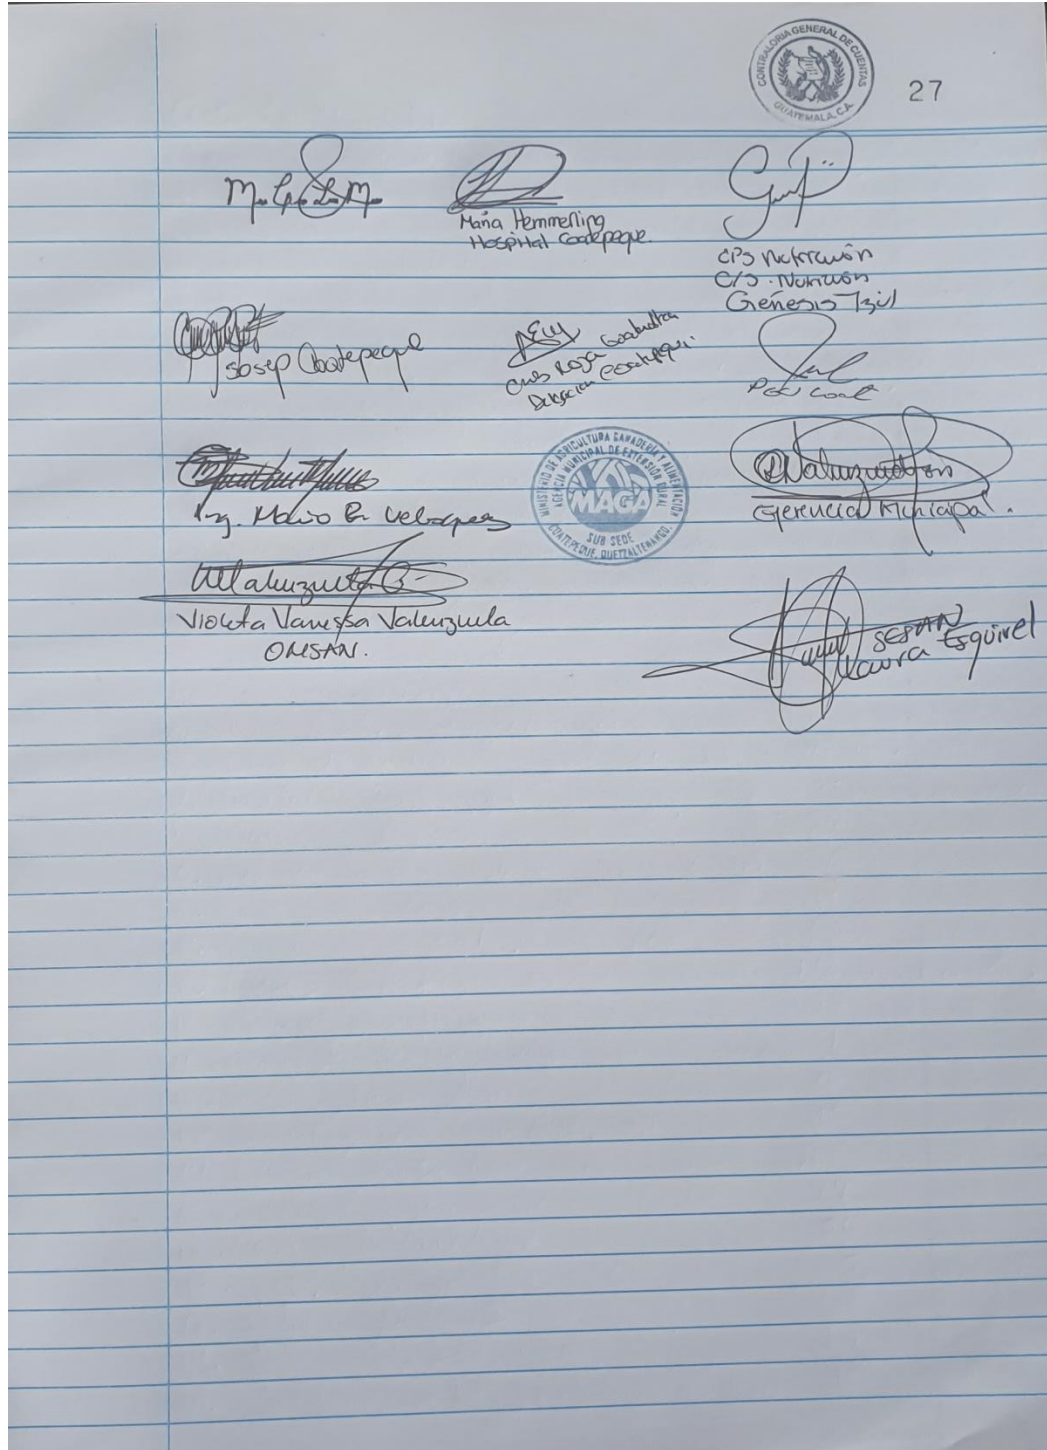 CONTRALORIA GENERAL DE CUENTAS
GUATEMALA, C.A.
27
María Hemmerling
Hospital Coatepeque.
CPS Nutrición
C/S. Nutrición
Génesis Tzil
Sosep Coatepeque
Cruz Roja Guatemalteca
Delegación Coatepeque.
MINISTERIO DE AGRICULTURA GANADERIA Y ALIMENTACION
AGENCIA MUNICIPAL DE EXTENSION RURAL
MAGA
SUB SEDE
COATEPEQUE, QUETZALTENANGO.
Ing. Mario R. Velasquez
Gerencia Municipal.
Violeta Vanessa Valenzuela
OMSAN.
SESAN
Laura Esquivel